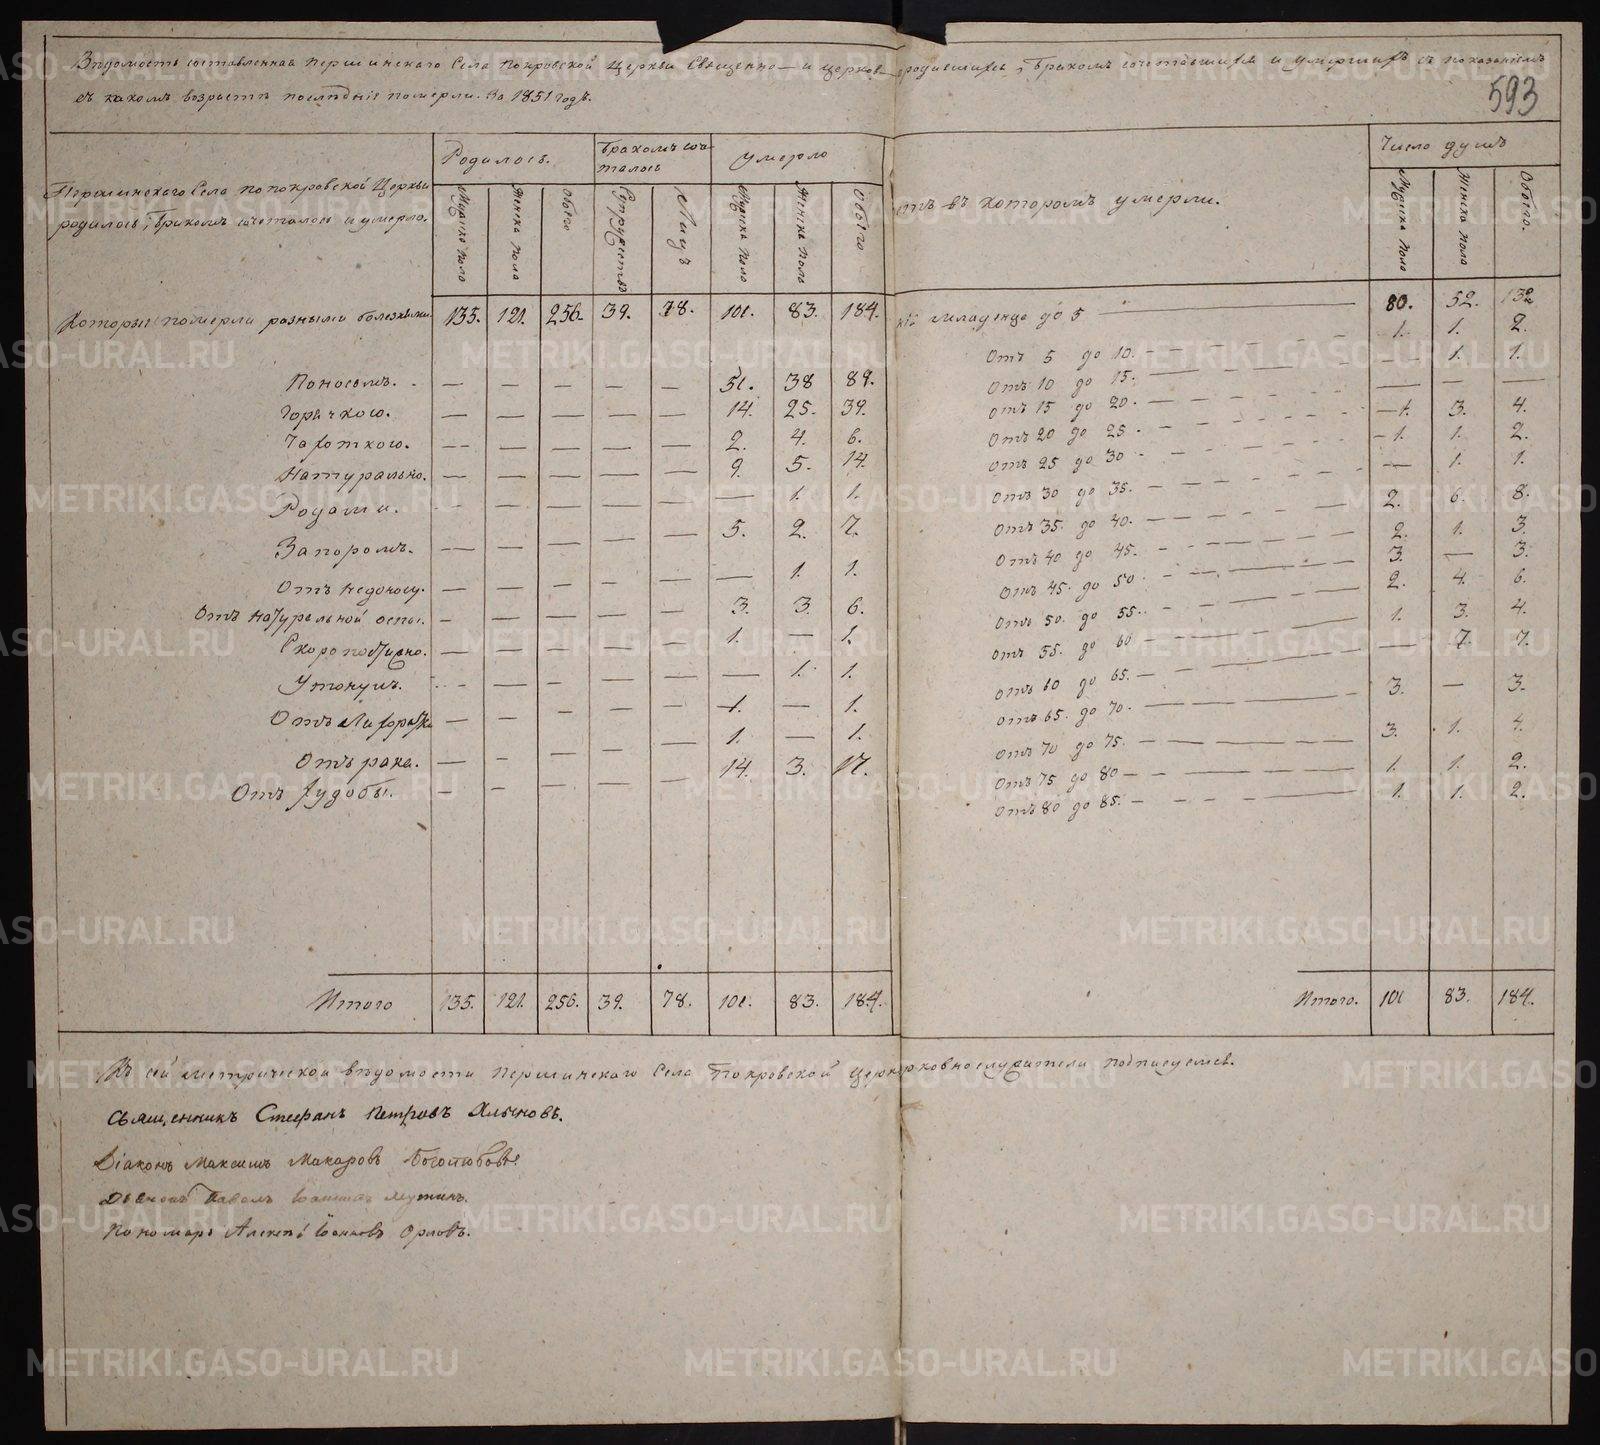 Вѣдомость составленная Першинскаго Села Покровской Церкви Священно- и церков- родившихся, бракомъ сочетавшихся и умершихъ съ показаніемъ
въ какомъ возрастѣ послѣдніе померли. За 1851 годъ.
593
Першинскаго Села по покровской Церкви
родилось, бракомъ сочеталось и умерло.
Родилось.
Бракомъ соче-
талось
Умерло
Мужска пола
Женска пола
Обоего
Супружествъ
Лицъ
Мужска пола
Женска пола
Обоего
въ которомъ умерли.
Число душъ
Мужска пола
Женска пола
Обоего.
Которые померли разными болезньми 135. 121. 256. 39. 78. 101. 83. 184.
Поносомъ. — — — — — 51. 38 89.
Горячкою. — — — — — 14. 25. 39.
Чахоткою. — — — — — 2. 4. 6.
Натурально. — — — — — 9. 5. 14.
Родами. — — — — — — 1. 1.
Запоромъ. — — — — — 5. 2. 7.
Отъ недоносу. — — — — — — 1. 1.
Отъ натуральной оспы. — — — — — 3. 3. 6.
Скоропостижно. — — — — — 1. — 1.
Утонулъ. — — — — — — 1. 1.
Отъ Лихорадки — — — — — 1. — 1.
Отъ рака. — — — — — 1. — 1.
Отъ худобы. — — — — — 14. 3. 17.
Итого 135. 121. 256. 39. 78. 101. 83. 184.
младенца до 5 — 80. 52. 132
Отъ 5 до 10. — 1. 1. 2.
Отъ 10 до 15. — — 1. 1.
Отъ 15 до 20. — — — —
Отъ 20 до 25. — 1. 3. 4.
Отъ 25 до 30. — 1. 1. 2.
Отъ 30 до 35. — — 1. 1.
Отъ 35. до 40. — 2. 6. 8.
Отъ 40 до 45. — 2. 1. 3.
Отъ 45. до 50. — 3. — 3.
Отъ 50. до 55. — 2. 4. 6.
Отъ 55. до 60 — 1. 3. 4.
Отъ 60 до 65. — — 7. 7.
Отъ 65. до 70. — 3. — 3.
Отъ 70 до 75. — 3. 1. 4.
Отъ 75 до 80 — 1. 1. 2.
Отъ 80 до 85. — 1. 1. 2.
Итого. 101 83. 184.
Къ сей метрической вѣдомости Першинскаго Села Покровской церк рковнослужители подписуемся.
Священникъ Стефанъ Петровъ
Діаконъ Максимъ Макаровъ Боголюбовъ
Павелъ
Пономарь Алексѣй Ивановъ Орловъ.
METRIKI.GASO-URAL.RU